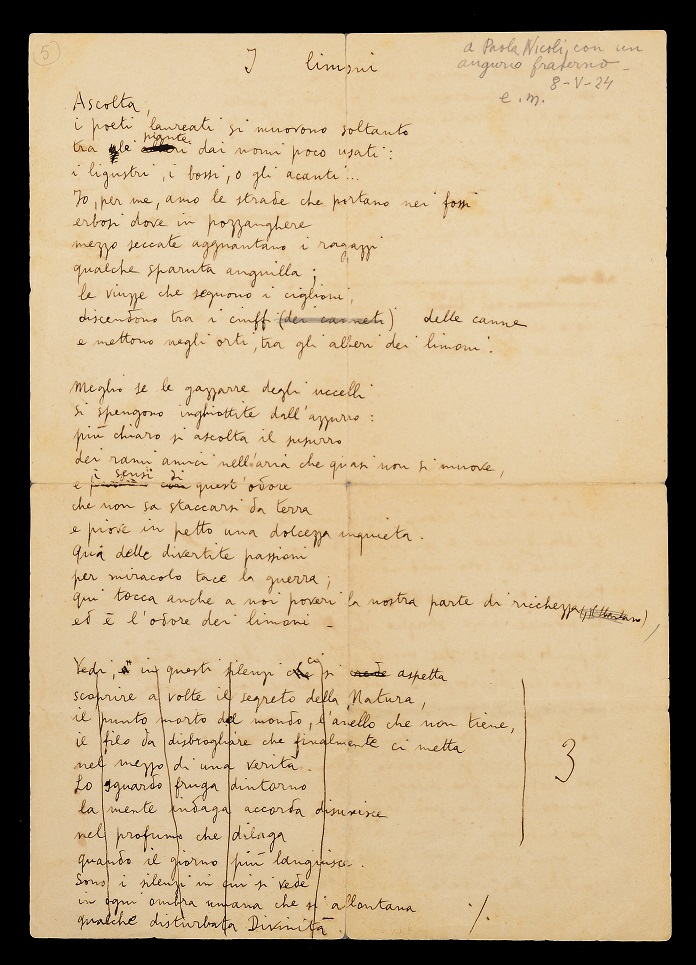 5
I limoni
a Paola Nicoli, con un
augurio fraterno –
8-V-24
e. m.
Ascolta,
i poeti laureati si muovono soltanto
piante
tra le dai nomi poco usati:
i ligustri, i bossi, o gli acanti...
Io, per me, amo le strade che portano nei fossi
erbosi dove in pozzanghere
mezzo seccate agguantano i ragazzi
qualche sparuta anguilla;
le viuzze che seguono i ciglioni,
discendono tra i ciuffi (dei canneti) delle canne
e mettono negli orti, tra gli alberi dei limoni.
Meglio se le gazzarre degli uccelli
si spengono inghiottite dall'azzurro:
più chiaro si ascolta il susurro
dei rami amici nell'aria che quasi non si muove,
i sensi di
e quest'odore
che non sa staccarsi da terra
e piove in petto una dolcezza inquieta.
Quà delle divertite passioni
per miracolo tace la guerra;
qui tocca anche a noi poveri la nostra parte di ricchezza,
ed è l'odore dei limoni –
Vedi, in questi silenzi ci si crede aspetta
scoprire a volte il segreto della Natura,
il punto morto del mondo, l'anello che non tiene,
il filo da disbrogliare che finalmente ci metta
nel mezzo di una verità.
3
Lo sguardo fruga dintorno
la mente indaga accorda disunisce
nel profumo che dilaga
quando il giorno più languisce.
Sono i silenzi in cui si vede
in ogni ombra umana che si allontana
./.
qualche disturbata Divinità.